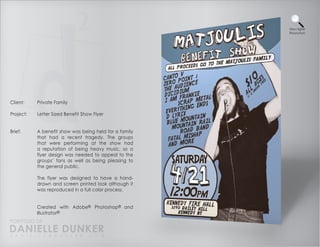 View higher
Resolution
Client: Private Family
Project: Letter Sized Benefit Show Flyer
Brief: A benefit show was being held for a family
that had a recent tragedy. The groups
that were performing at the show had
a reputation of being heavy music, so a
flyer design was needed to appeal to the
groups' fans as well as being pleasing to
the general public.
The flyer was designed to have a hand-
drawn and screen printed look although it
was reproduced in a full color process.
Created with Adobe® Photoshop® and
Illustrator®
PORTFOLIO OF
DANIELLE DUNKER
MATJOULIS
BENEFIT SHOW
ALL PROCEEDS GO TO THE MATJOULIS FAMILY
CANTO V
ZERO POINT 1
THE AUDIENCE
DECIDUUM
I AM FRANKIE
SCRAP METAL
EVERYTHING ENDS
D LYRIX
BLUE MOUNTAIN
MOUNTAIN RAIL
ROAD BAND
FATAL MISHAP
AND MORE
$10
ALL AGES
SATURDAY
4/21
12:00PM
KENNEDY FIRE HALL
KENNEDY NY